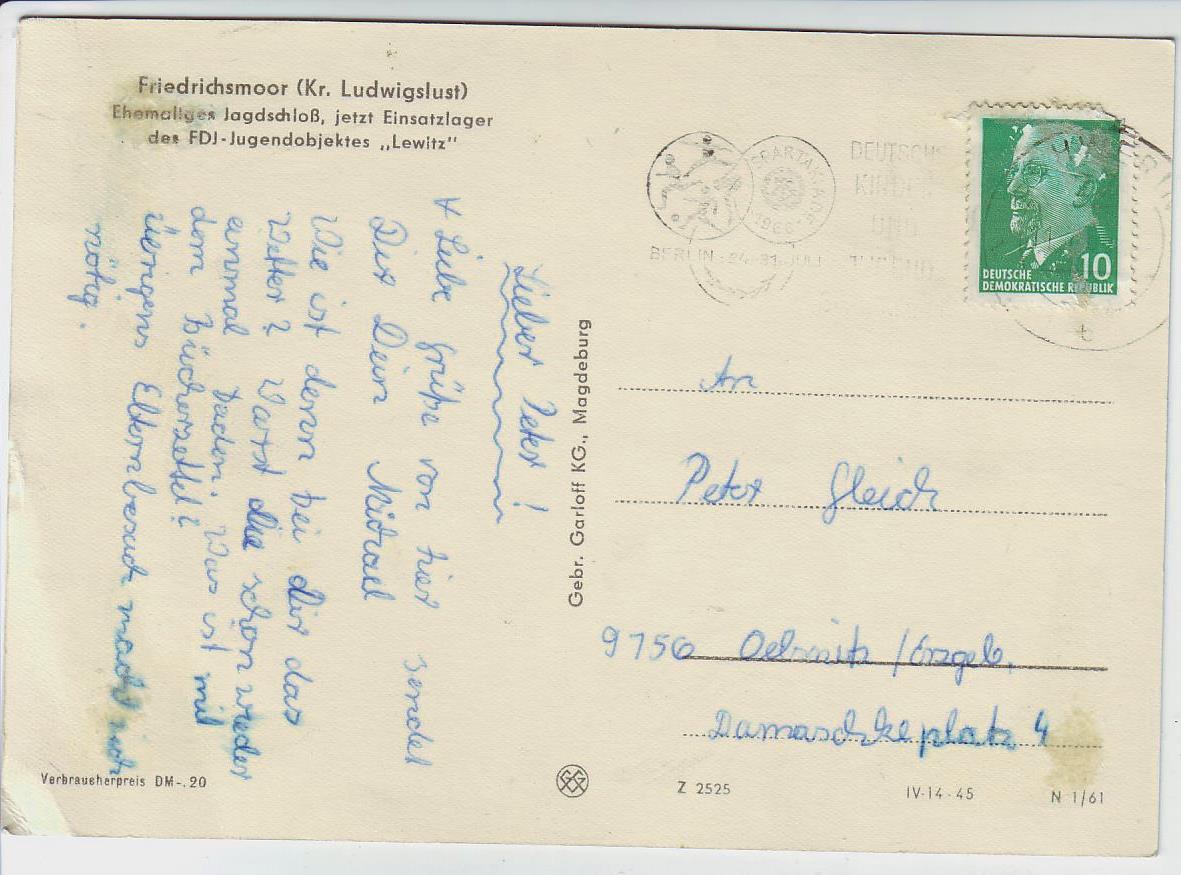 Friedrichsmoor (Kr. Ludwigslust)
Ehemaliges Jagdschloß, jetzt Einsatzlager
des FDJ-Jugendobjektes „Lewitz"
Lieber Peter!
Liebe Grüße von hier sendet
Dir Dein Michael
Wie ist denn bei dir das
Wetter? Warst du schon wieder
einmal baden? Was ist mit
dem Bücherzettel?
Übrigens Elternbesuch macht sich
nötig.
Gebr. Garloff KG., Magdeburg
SPARTAKIADE
1966
BERLIN · 24.-31. JULI
DEUTSCHE
KINDER
UND
JUGEND
10
DEUTSCHE
DEMOKRATISCHE REPUBLIK
An
Peter Gleich
9756 Oelsnitz /Erzgeb.
Damaschkeplatz 4
Verbraucherpreis DM-.20
Z 2525
IV-14-45
N 1/61